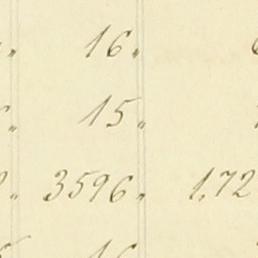 16.
15.
3596. 1,72
16